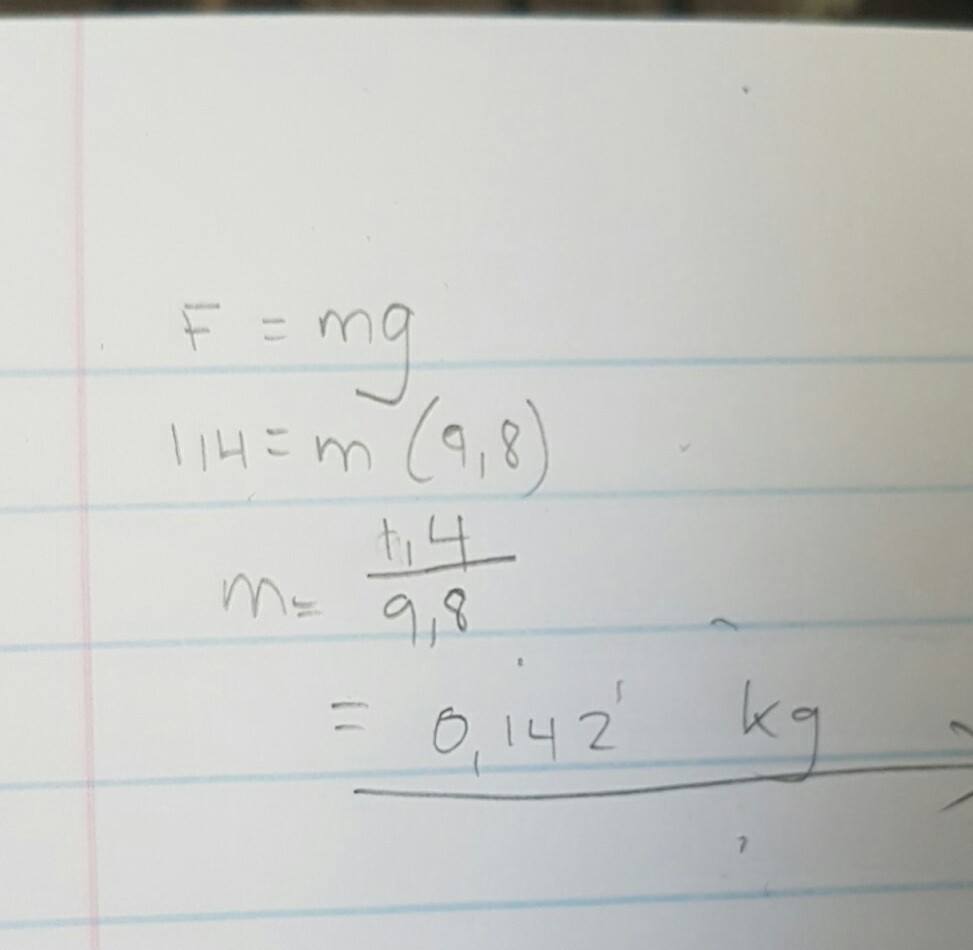 F = mg
1,4 = m (9,8)
m = 1,4 / 9,8
= 0,142 kg